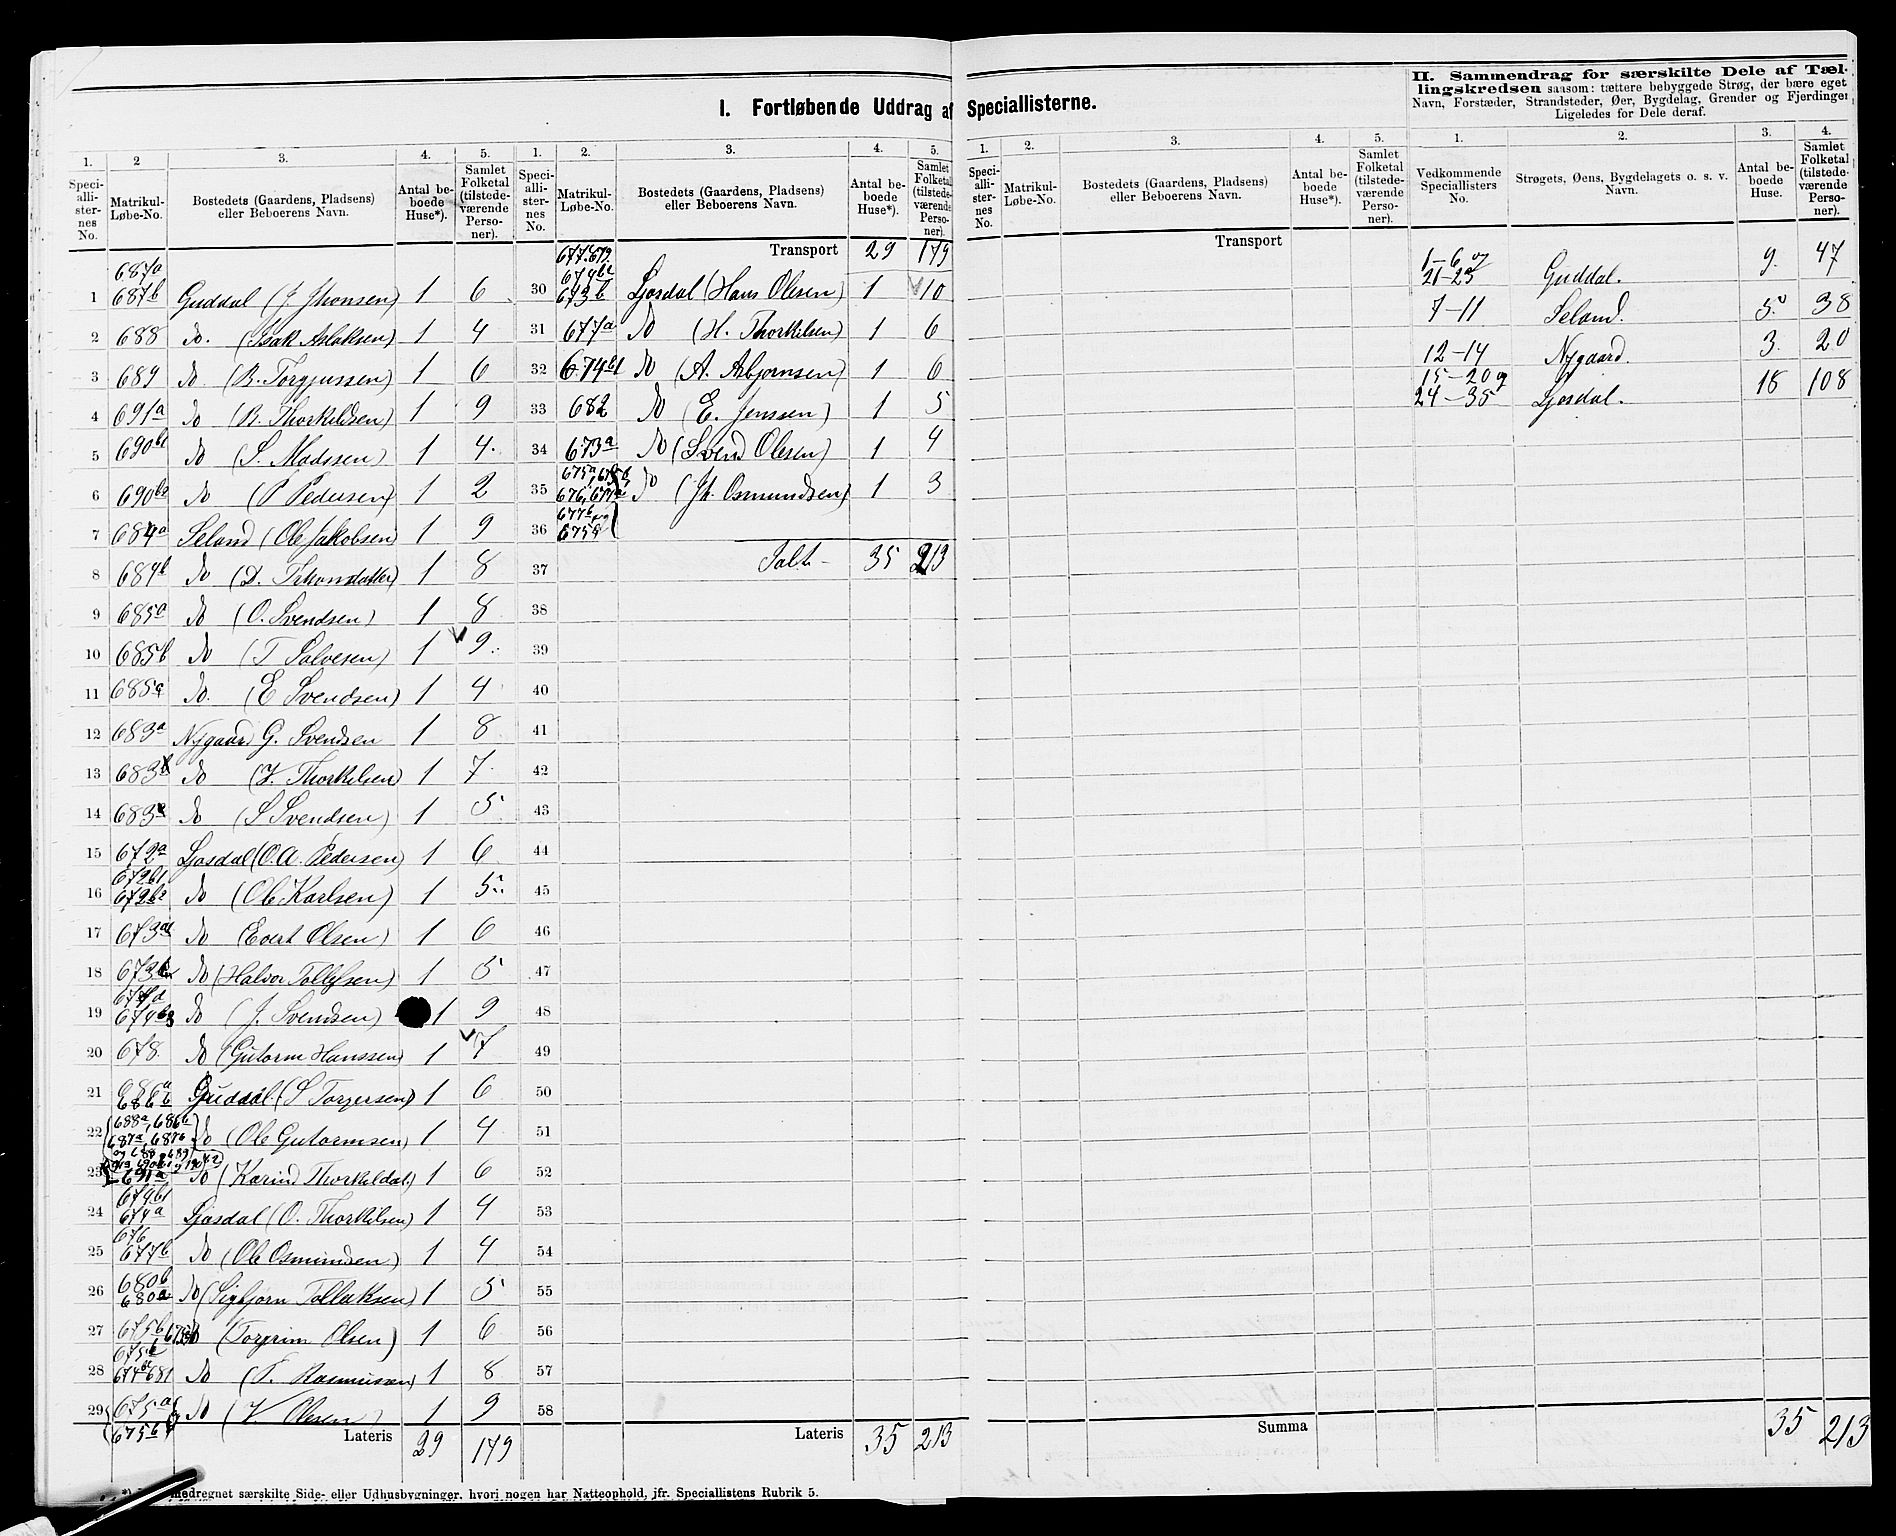 I. Fortløbende Uddrag af Speciallisterne.
1. 2 3. 4. 5.
Speciallisternes No. Matrikul-Løbe-No. Bostedets (Gaardens, Pladsens) eller Beboerens Navn. Antal beboede Huse*). Samlet Folketal (tilstedeværende Personer).
687a
1 687b Guddal (J Jhonsen) 1 6
2 688 Do. (Isak Aslaksen) 1 4
3 689 Do (B. Torgjussen) 1 6
4 691a Do (B. Thorkildsen) 1 9
5 690b1 Do (S. Madssen) 1 4.
6 690b2 Do (P Pedersen) 1 2
7 684a Seland (Ole Jakobsen) 1 9
8 684b Do (D. Trhonsdatter) 1 8
9 685a Do (O. Svendsen) 1 8
10 685b Do (T Salvesen) 1 9.
11 685c Do. (E Svendsen) 1 4
12 683a Nygaard G. Svendsen 1 8
13 683b Do (V. Thorkilsen) 1 7.
14 683c Do (S Svendsen) 1 5
15 672a Ljosdal (O.A. Pedersen) 1 6
672b1
16 672b2 Do (Ole Karlsen) 1 5
17 673a1 Do (Evert Olsen) 1 6
18 673b Do (Halvor Tollefsen) 1 5
674a
19 674b3 Do (J. Svendsen) 1 9
20 678. Do (Gutorm Hanssen) 1 7
21 686a b Guddal (S Torjersen) 1 6
688a, 686b
22 687a, 687b Do (Ole Gutormsen) 1 4
og 688 689
23 691a Do (Karine Thorkildal.) 1 6
674b1
24 674a Ljosdal (O. Thorkilsen) 1 4
676
25 677b Do (Ole Osmundsen) 1 4
680b
26 680a Do (Sigbjorn Tollaksen) 1 5
27 675b Do (Torgrim Olsen) 1 6
675b
28 674b1 681 Do (T. Rasmussen) 1 8
29 675a Do (V. Olesen) 1 9
675b Lateris 29 179
1. 2. 3. 4. 5.
Speciallisternes No. Matrikul-Løbe-No. Bostedets (Gaardens, Pladsens) eller Beboerens Navn. Antal beboede Huse*). Samlet Folketal (tilstedeværende Personer).
677.679. Transport 29 179
674b2
30 673b Ljosdal (Hans Olesen) 1 10
31 677a Do (H. Thorkilsen) 1 6
32 674b1 Do (A. Asbjornsen) 1 6
33 682 Do (E. Jenssen) 1 5
34 673a Do (Svend Olesen) 1 4
675a, 675b
35 676, 677a Do (Jh. Osmundsen) 1 3
677b og
36 675a
37 Ialt - 35 213
38
39
40
41
42
43
44
45
46
47
48
49
50
51
52
53
54
55
56
57
58
Lateris 35 213
*) medregnet særskilte Side- eller Udhusbygninger, hvori nogen har Natteophold, jfr. Speciallistens Rubrik 5.
1. 2. 3. 4. 5.
Speciallisternes No. Matrikul-Løbe-No. Bostedets (Gaardens, Pladsens) eller Beboerens Navn. Antal beboede Huse*). Samlet Folketal (tilstedeværende Personer).
Transport
Summa
II. Sammendrag for særskilte Dele af Tællingskredsen saasom: tættere bebyggede Strøg, der bære eget
Navn, Forstæder, Strandsteder, Øer, Bygdelag, Grender og Fjerdinger
Ligeledes for Dele deraf.
1. 2. 3. 4.
Vedkommende Speciallisters No. Strøgets, Øens, Bygdelagets o. s. v. Navn. Antal beboede Huse. Samlet Folketal (tilstedeværende Personer).
1-6 og
21-23 Guddal. 9. 47
7-11 Seland. 5. 38
12-14 Nygaard. 3. 20
15-20 og
24-35 Ljosdal. 18 108
35 213